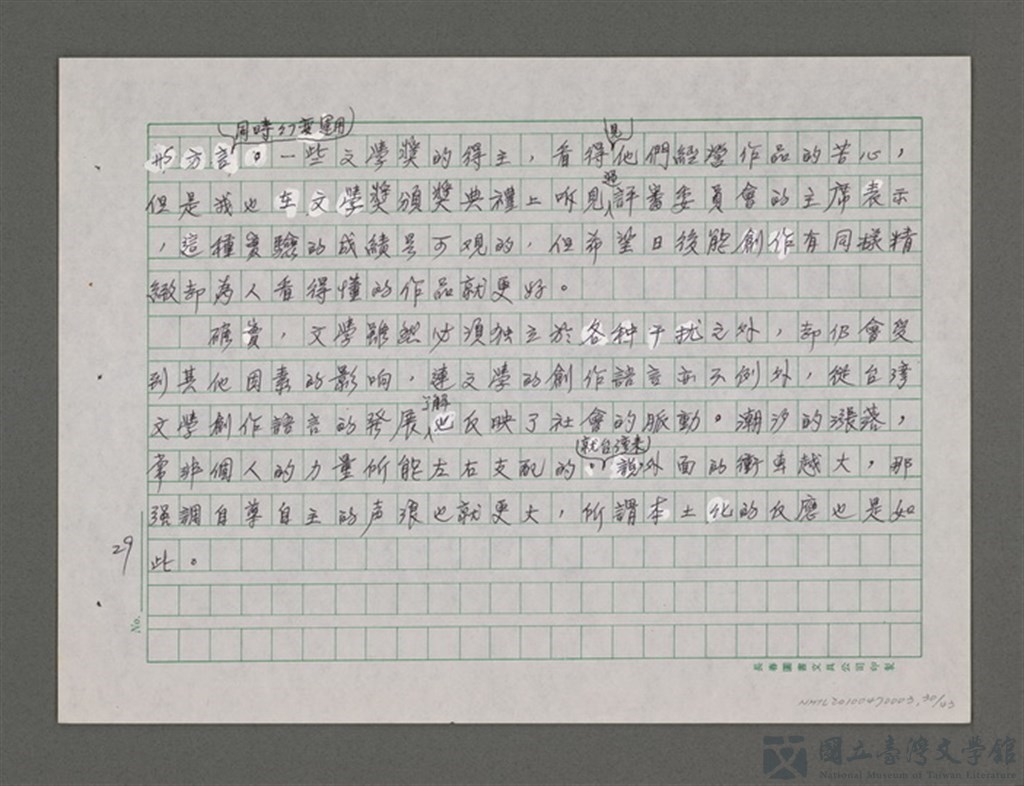 同時的要運用
形方言。一些文學獎的得主,看得見他們經營作品的苦心,
但是我也在文學獎頒獎典禮上听見過評審委員會的主席表示
,這種實驗的成績是可观的,但希望日後能創作有同樣精
緻却為人看得懂的作品就更好。
確實,文學雖然必須独立於各种干扰之外,却仍會受
到其他因素的影响,連文學的創作語言亦不例外,從台湾
文學創作語言的發展了解也反映了社會的脈動。潮汐的漲落,
常非個人的力量所能左右支配的,就台湾來說,外面的衝击越大,那
强調自尊自主的声浪也就更大,所謂本土化的反應也是如
此。
29
No.
長春圖書文具公司印製
NMTL20100470003,30/43
國立臺灣文學館
National Museum of Taiwan Literature